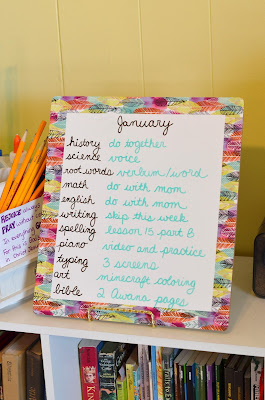 January
history do together
science voice
root words verbum/word
math do with mom
english do with mom
writing skip this week
spelling lesson 15 part B
piano video and practice
typing 3 screens
art minecraft coloring
bible 2 Awana pages
REJOICE
PRAY
In everything